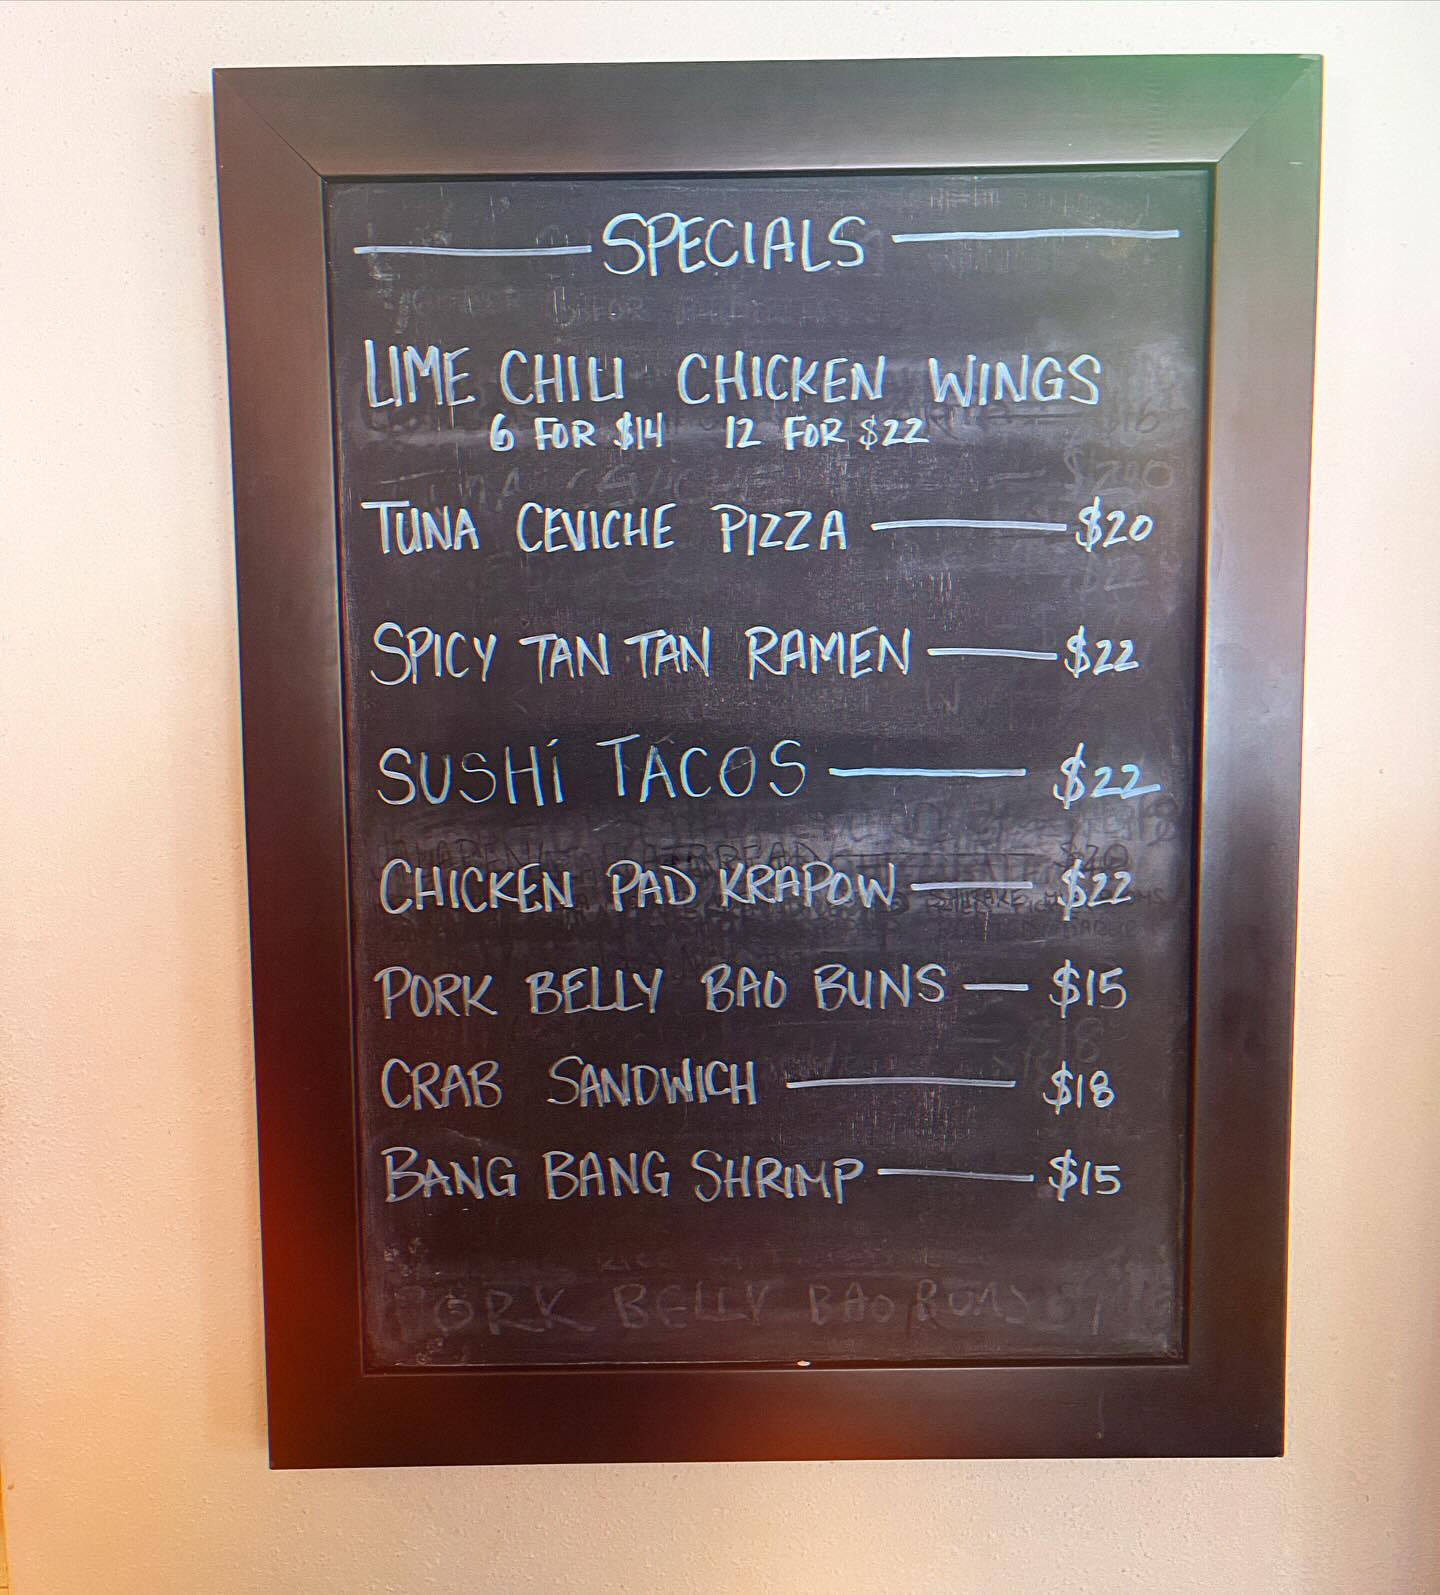 SPECIALS
LIME CHILI CHICKEN WINGS
6 FOR $14 12 FOR $22
TUNA CEVICHE PIZZA $20
SPICY TAN TAN RAMEN $22
SUSHI TACOS $22
CHICKEN PAD KRAPOW $22
PORK BELLY BAO BUNS $15
CRAB SANDWICH $18
BANG BANG SHRIMP $15
PORK BELLY BAO BUNS